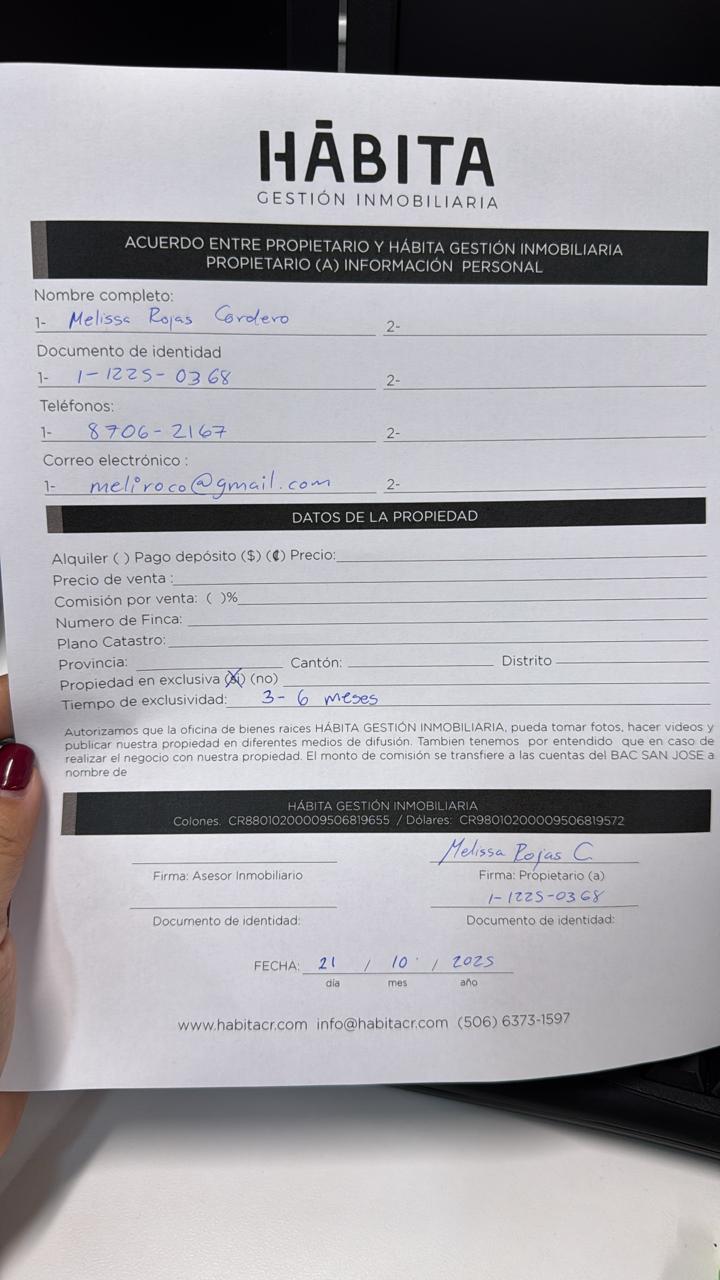 HĀBITA
GESTIÓN INMOBILIARIA
ACUERDO ENTRE PROPIETARIO Y HÁBITA GESTIÓN INMOBILIARIA
PROPIETARIO (A) INFORMACIÓN PERSONAL
Nombre completo:
1- Melissa Rojas Cordero 2-
Documento de identidad
1- 1-1225-0368 2-
Teléfonos:
1- 8706-2167 2-
Correo electrónico :
1- meliroco@gmail.com 2-
DATOS DE LA PROPIEDAD
Alquiler ( ) Pago depósito ($) (₡) Precio:
Precio de venta :
Comisión por venta: ( )%
Numero de Finca:
Plano Catastro:
Provincia: Cantón: Distrito
Propiedad en exclusiva (si) (no)
Tiempo de exclusividad: 3-6 meses
Autorizamos que la oficina de bienes raices HÁBITA GESTIÓN INMOBILIARIA, pueda tomar fotos, hacer videos y
publicar nuestra propiedad en diferentes medios de difusión. Tambien tenemos por entendido que en caso de
realizar el negocio con nuestra propiedad. El monto de comisión se transfiere a las cuentas del BAC SAN JOSE a
nombre de
HÁBITA GESTIÓN INMOBILIARIA
Colones. CR88010200009506819655 / Dólares: CR98010200009506819572
Melissa Rojas C.
Firma: Asesor Inmobiliario Firma: Propietario (a)
1-1225-0368
Documento de identidad: Documento de identidad:
FECHA: 21 / 10 / 2025
día mes año
www.habitacr.com info@habitacr.com (506) 6373-1597